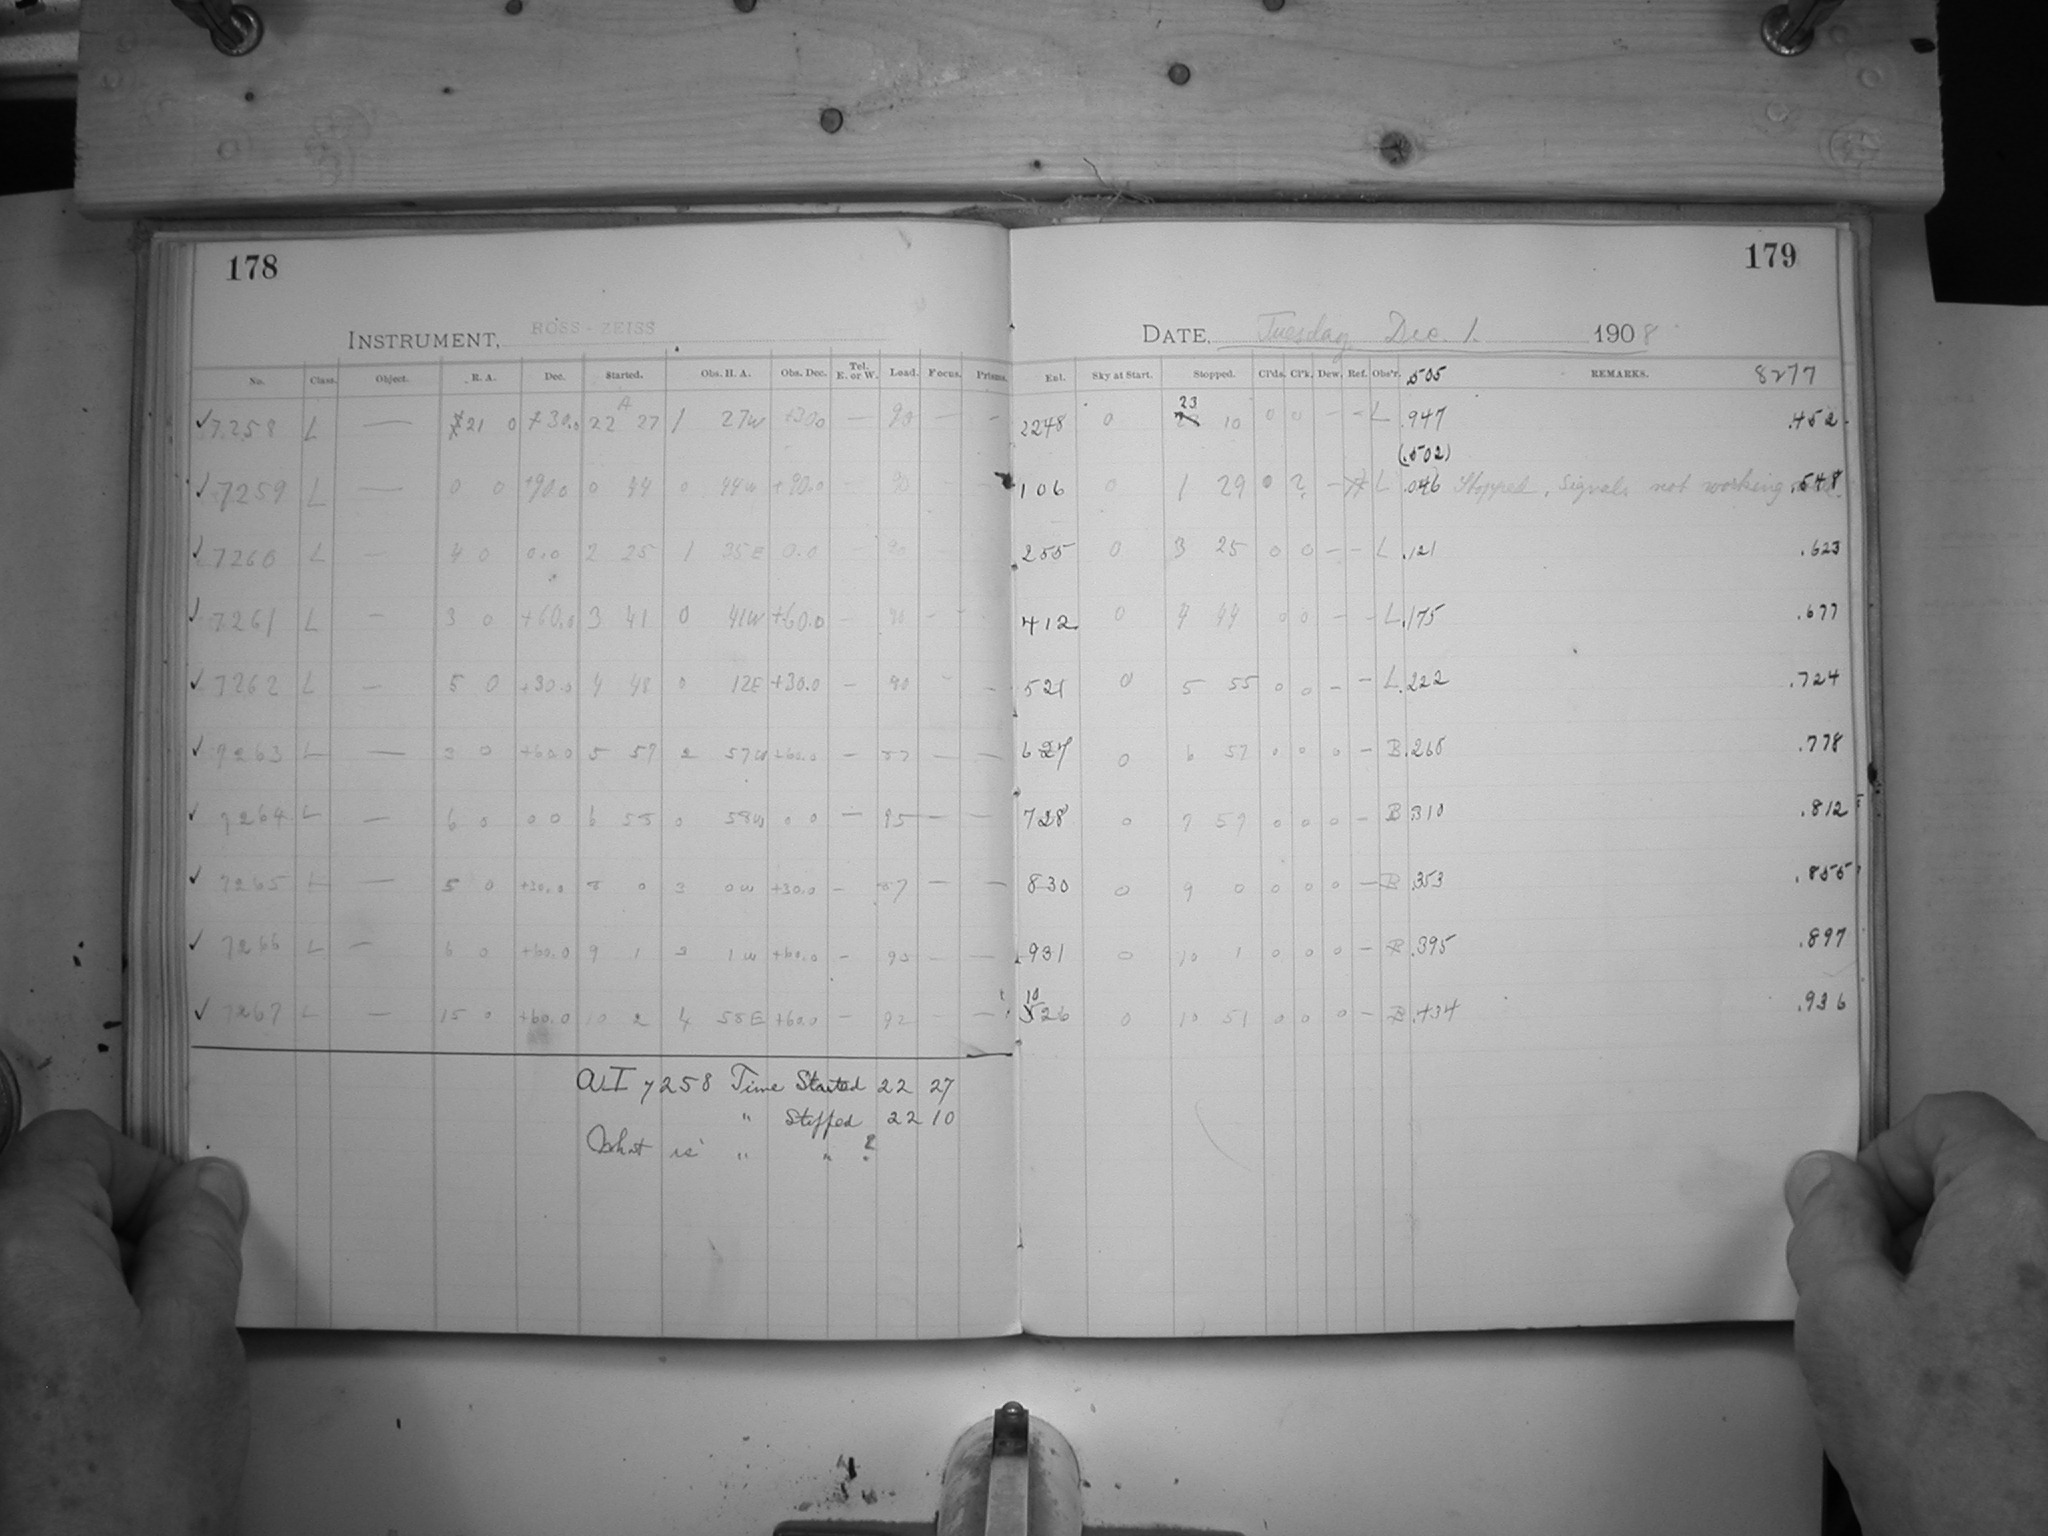 178
INSTRUMENT, ROSS-ZEISS
No. Class. Object. R. A. Dec. Started. Obs. H. A. Obs. Dec. Tel. E. or W. Load. Focus. Prisms.
✓ 7258 L — 21 0 +30.0 22 27 1 27W +30.0 — 90 — —
✓ 7259 L — 0 0 +90.0 0 44 0 44W +90.0 — 90 — —
✓ 7260 L — 4 0 0.0 2 25 1 35E 0.0 — 90 — —
✓ 7261 L — 3 0 +60.0 3 41 0 41W +60.0 — 90 — —
✓ 7262 L — 5 0 +30.0 4 48 0 12E +30.0 — 90 — —
✓ 7263 L — 3 0 +60.0 5 57 2 57W +60.0 — 87 — —
✓ 7264 L — 6 0 0 0 6 58 0 58W 0 0 — 95 — —
✓ 7265 L — 5 0 +30.0 8 0 3 0W +30.0 — 87 — —
✓ 7266 L — 6 0 +60.0 9 1 3 1W +60.0 — 90 — —
✓ 7267 L — 15 0 +60.0 10 2 4 58E +60.0 — 92 — —
7258 Time Started 22 27
" Stopped 22 10
What is " " ?
179
DATE, Tuesday Dec. 1. 1908
Ent. Sky at Start. Stopped. Cl'ds. Cl'k. Dew. Ref. Obs'r. .505 REMARKS. 8277
2248 0 23 10 0 0 — — L .947 .452
(.502)
106 0 1 29 0 2 — L .046 Stopped, Signals not working .548
255 0 3 25 0 0 — — L .121 .623
412 0 4 44 0 0 — — L .175 .677
521 0 5 55 0 0 — — L .222 .724
627 0 6 57 0 0 0 — B .778
728 0 7 59 0 0 0 — B .310 .812
830 0 9 0 0 0 0 — B .353 .855
931 0 10 1 0 0 0 — B .395 .897
10
26 0 10 51 0 0 0 — B .434 .936